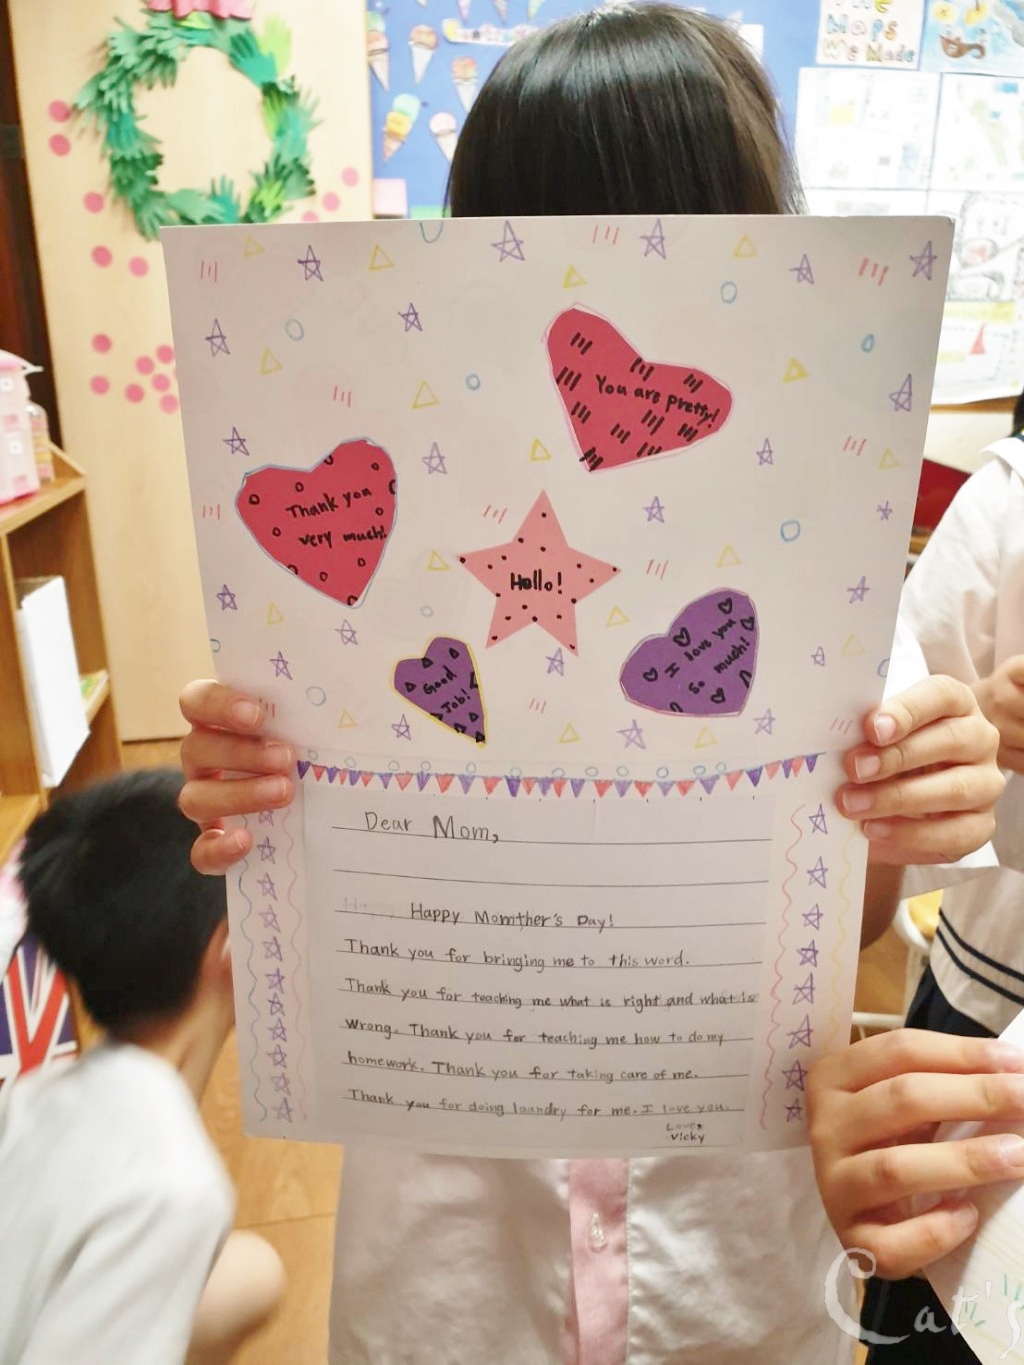 The
Maps
We Made
You are pretty!
Thank you
very much!
Hello!
I love you
so much!
Good
Job!
Dear Mom,
Happy Momther's Day!
Thank you for bringing me to this word.
Thank you for teaching me what is right and what is
wrong. Thank you for teaching me how to do my
homework. Thank you for taking care of me.
Thank you for doing laundry for me. I love you.
Love,
Vicky
Cat's